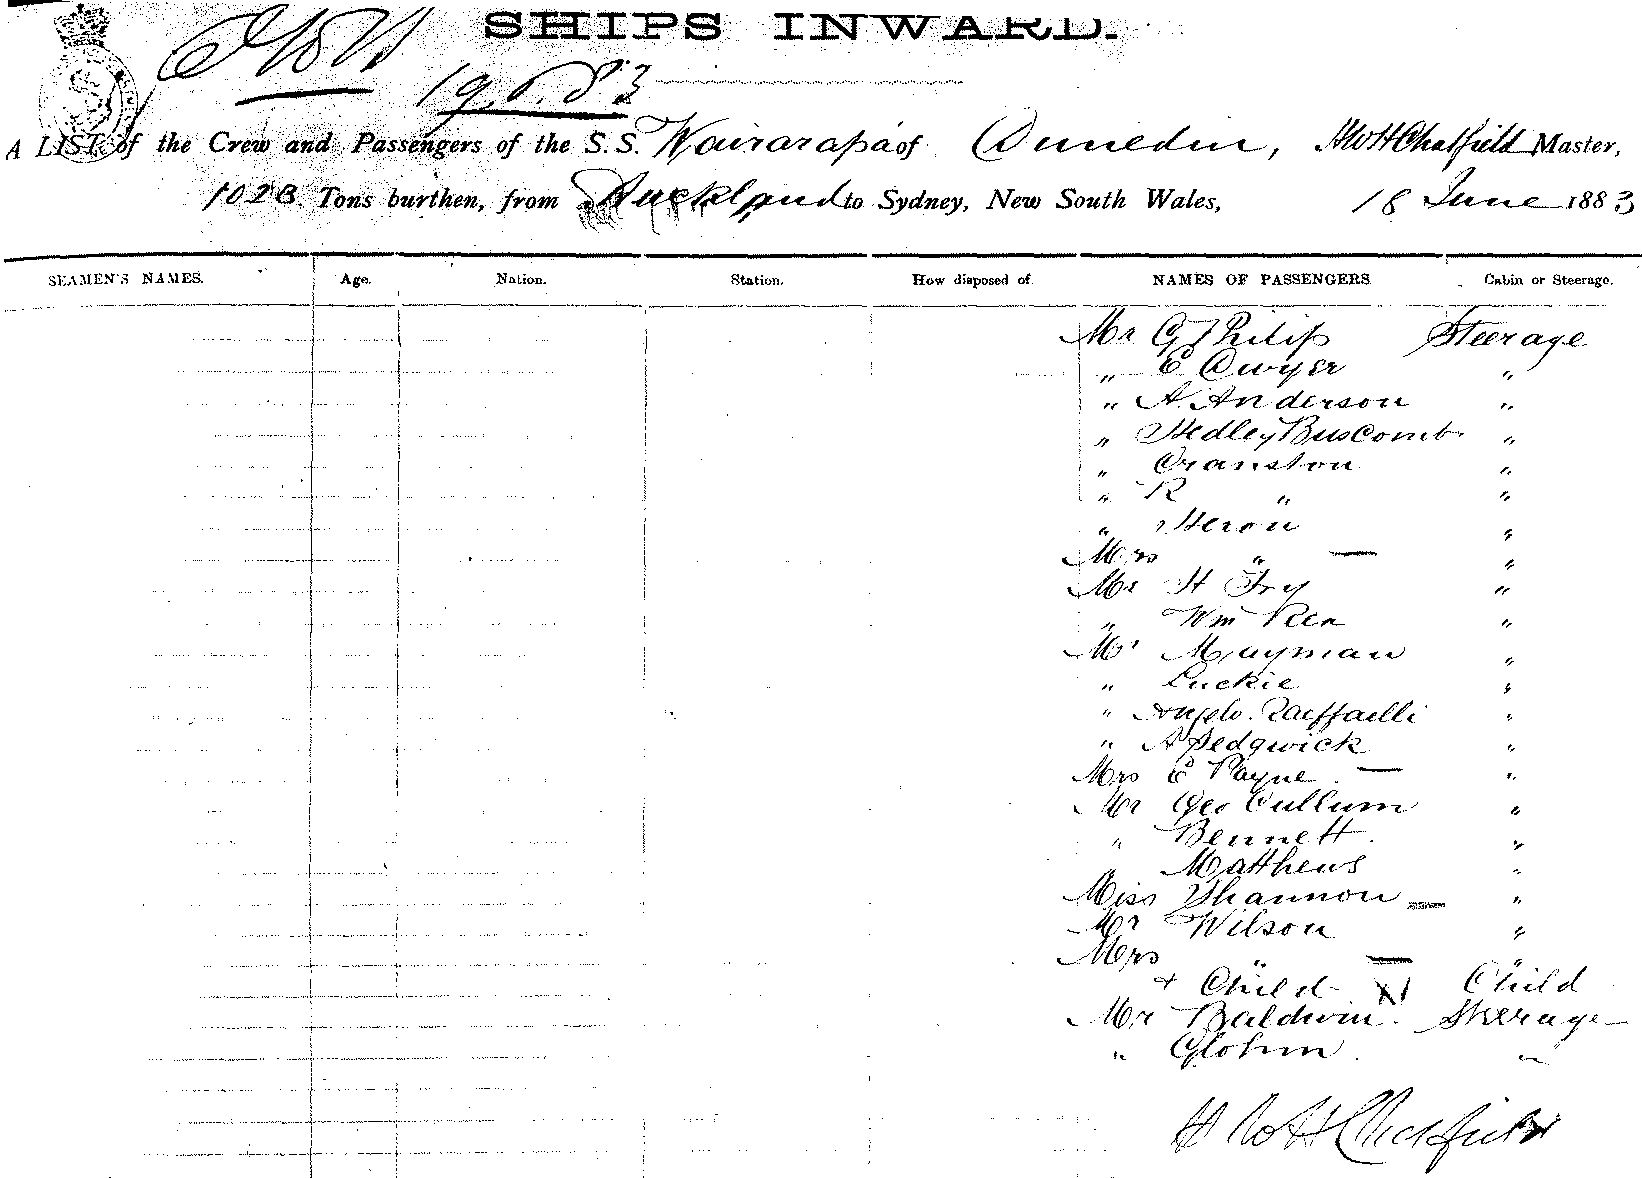 SHIPS INWARD.
19.6.83
A LIST of the Crew and Passengers of the S.S. Wairarapa of Dunedin, HWHChatfield Master,
1023 Tons burthen, from Auckland to Sydney, New South Wales, 18 June 1883
SEAMEN'S NAMES. Age. Nation. Station. How disposed of. NAMES OF PASSENGERS Cabin or Steerage.
Mr G Philip Steerage
" E Dwyer "
" A. Anderson "
" Hedley Buscomb "
" Cranston "
" R " "
" Heron "
Mrs " — "
Mr H Fry "
" Wm Peer "
Mr Mayman "
" Luckie "
" Angelo. Raeffaelli "
" A Sedgwick "
Mrs E Payne — "
Mr Geo Cullum "
" Bennett "
" Matthews "
Miss Shannon — "
Mr Wilson "
Mrs " — "
+ Child Child
Mr Baldwin. Steerage
" Glohm "
HWHChatfield